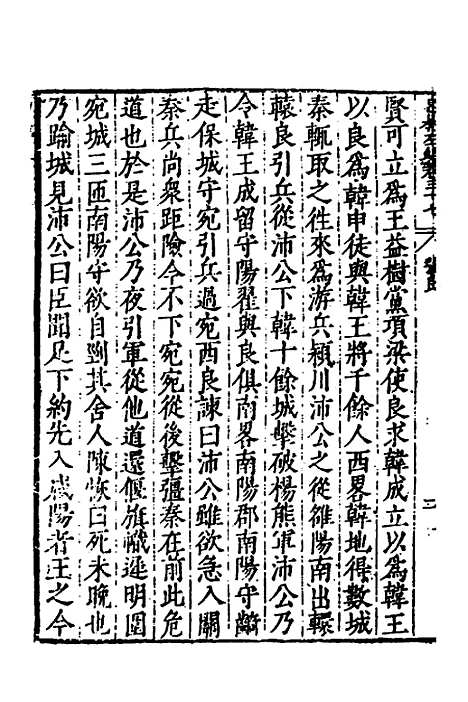 賢可立為王益樹黨項梁使良求韓成立以為韓王
以良為韓申徒與韓王將千餘人西畧韓地得數城
秦輒取之徃來為游兵潁川沛公之從雒陽南出轘
轅良引兵從沛公下韓十餘城擊破楊熊軍沛公乃
令韓王成留守陽翟與良俱南畧南陽郡南陽守齮
走保城守宛引兵過宛西良諫曰沛公雖欲急入關
秦兵尚衆距險今不下宛宛從後擊彊秦在前此危
道也於是沛公乃夜引軍從他道還偃旗幟遲明圍
宛城三匝南陽守欲自剄其舍人陳恢曰死未晚也
乃踰城見沛公曰臣聞足下約先入咸陽者王之今